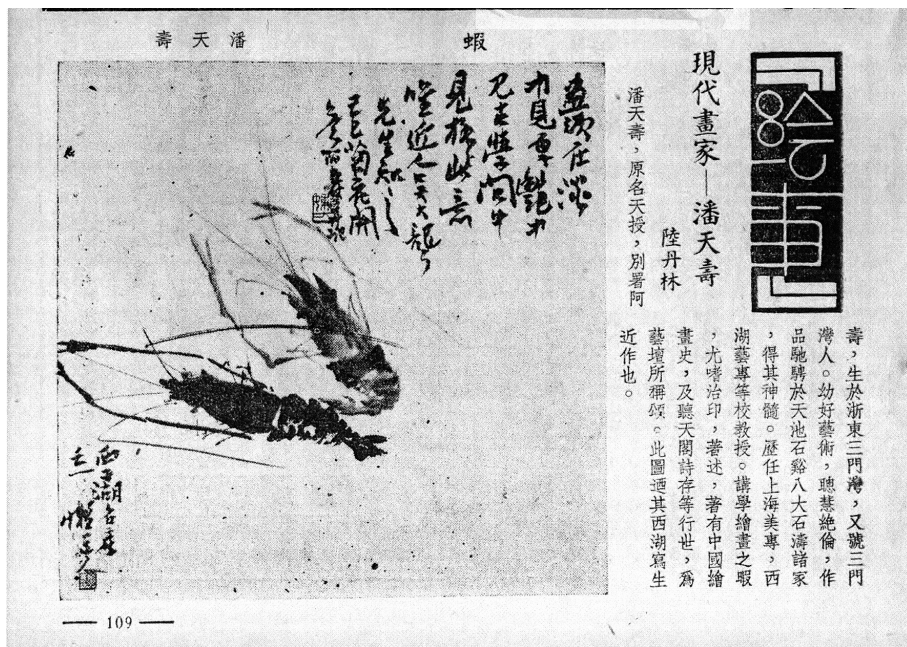 繪畫
現代畫家──潘天壽
陸丹林
潘天壽，原名天授，別署阿
壽，生於浙東三門灣，又號三門
灣人。幼好藝術，聰慧絕倫，作
品馳騁於天池石谿八大石濤諸家
，得其神髓。歷任上海美專，西
湖藝專等校教授。講學繪畫之暇
，尤嗜治印，著述，著有中國繪
畫史，及聽天閣詩存等行世，爲
藝壇所稱頌。此圖迺其西湖寫生
近作也。
蝦
潘天壽
先生知之
己巳菊花開
109